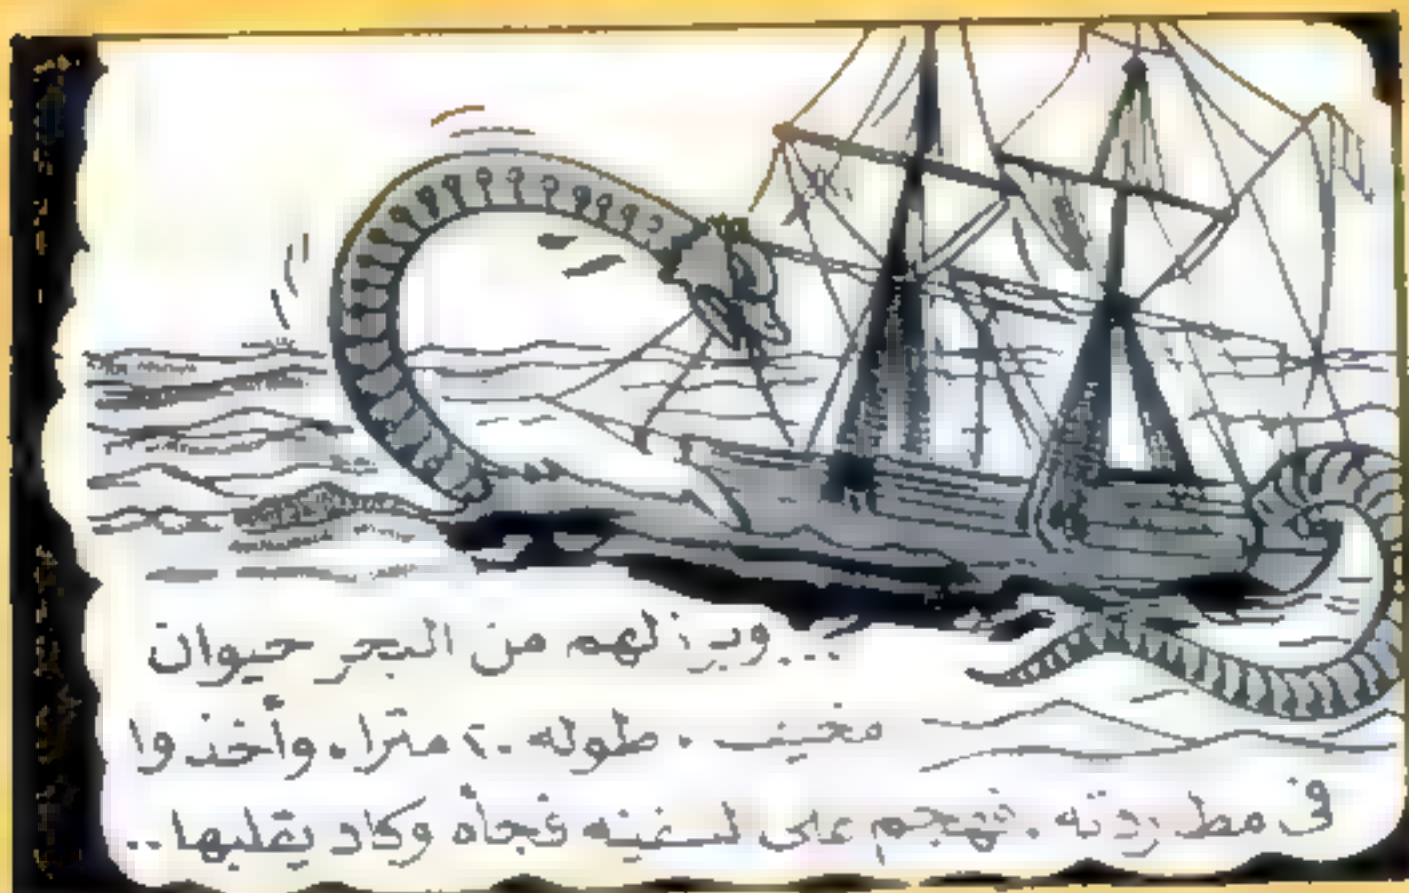 ... وبرز لهم من البحر حيوان
مخيف . طوله ٢٠ مترا . وأخذوا
فى مطاردته . فهجم على السفينه فجأه وكاد يقلبها ..